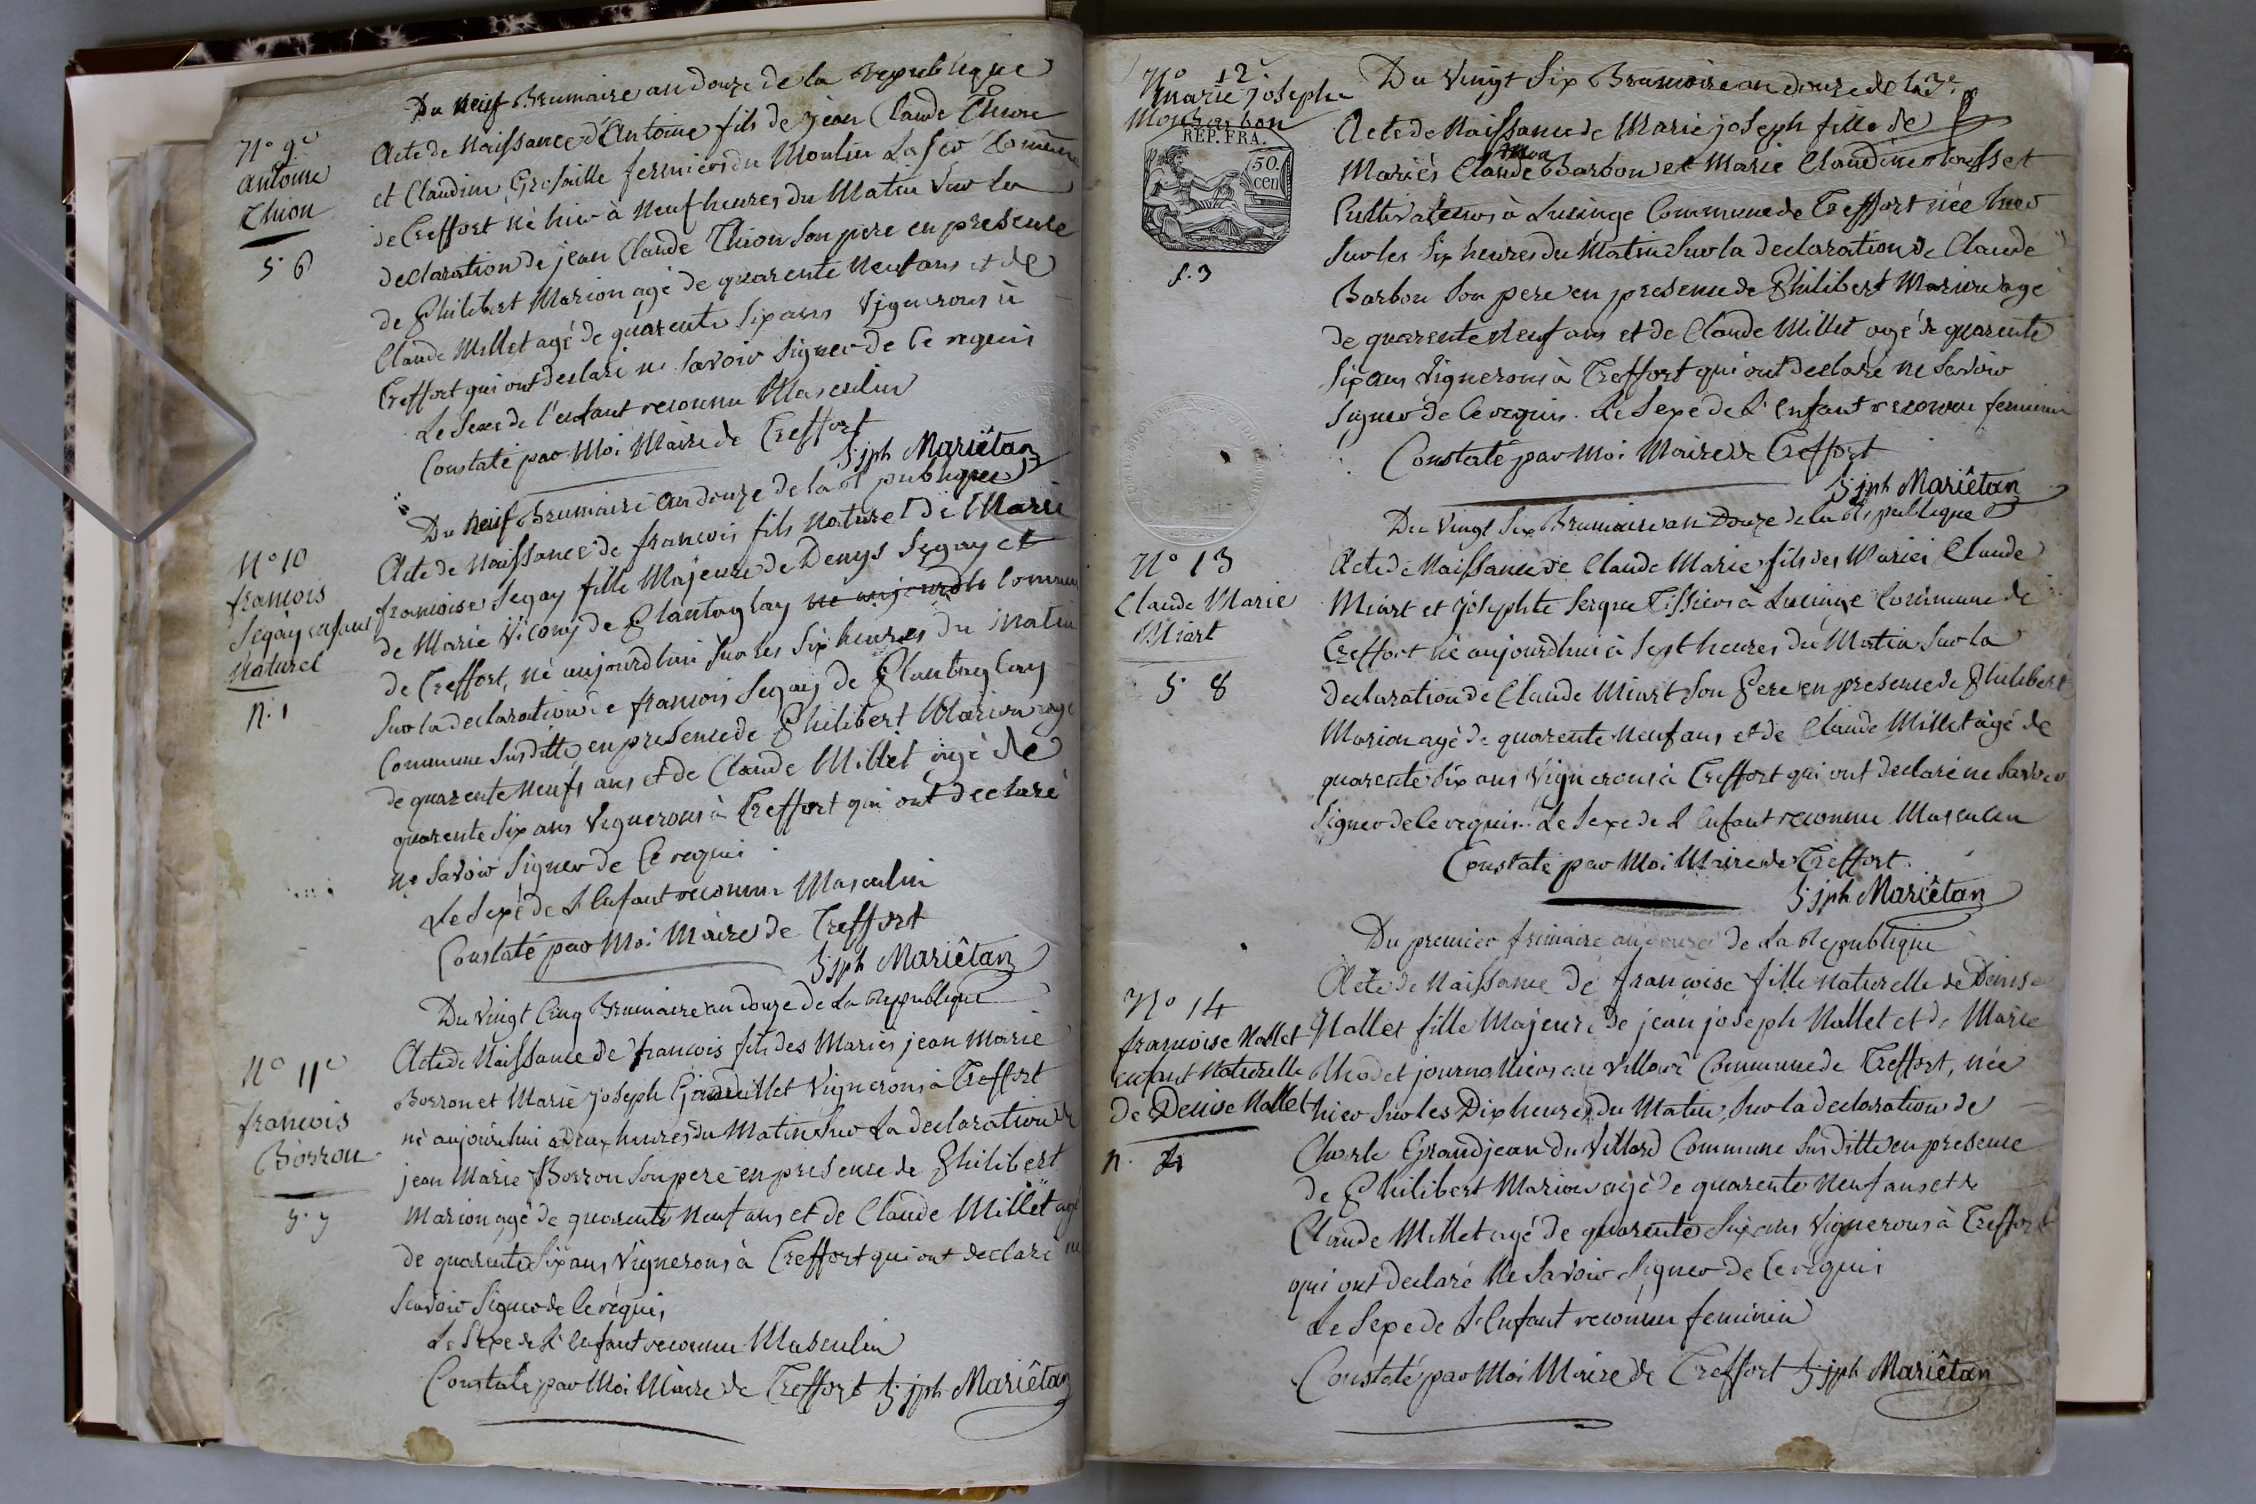 Du neuf Brumaire an douze de la republique
N° 9e
antoine
Thion
5. 6
Acte de Naissance d'Antoine fils de jean Claude Thion
et Claudine fermiers du Moulin
de Treffort né hier à Neuf heures du Matin Sur la
declaration de jean Claude Thion Son pere en presence
de Philibert Marion agé de quarente neuf ans et de
Claude Millet agé de quarente Six ans Vignerons à
Treffort qui ont declaré ne Savoir Signer de Ce requis
Le Sexe de l'enfant reconnu Masculin
Constaté par Moi Maire de Treffort
jph Mariêtan
Du neuf Brumaire an douze de la republique
N° 10
francois
Segay enfant
Naturel
n. 1
Acte de Naissance de francois fils naturel de Marie
francoise Segay fille Majeure de Denys Segay et
de Marie de Plantaglay Commune
de Treffort, né aujourdhui Sur les Six heures du Matin
Sur la declaration de francois Segay de Plantaglay
Commune Susditte en presence de Philibert Marion agé
de quarente Neufs ans et de Claude Millet agé de
quarente Six ans Vignerons à Treffort qui ont declaré
ne Savoir Signer de Ce requis
Le Sexe de L'Enfant reconnu Masculin
Constaté par Moi Maire de Treffort
jph Mariêtan
Du Vingt Cinq Brumaire an douze de La Republique
N° 11e
francois
Borron
5. 7
Acte de Naissance de francois fils des Mariés jean Marie
Borron et Marie joseph Vignerons à Treffort
né aujourdhui a Deux heures du Matin Sur La declaration de
jean Marie Borron Son pere en presence de Philibert
Marion agé de quarente Neuf ans et de Claude Millet agé
de quarente Six ans Vignerons à Treffort qui ont declaré ne
Savoir Signer de Ce requis,
Le Sexe de L'Enfant reconnu Masculin
Constaté par Moi Maire de Treffort jph Mariêtan
N° 12e
Marie joseph
Monbarbon
REP. FRA.
50.
cen
5. 3
Du Vingt Six Brumaire an douze de la
Acte de Naissance de Marie joseph fille de
Mariés Claude Mon Barbon et Marie Claudine
Cultivateurs à Lucinge Commune de Treffort née hier
Sur les Six heures du Matin Sur la declaration de Claude
Barbon Son pere en presence de Philibert Marion agé
de quarente Neuf ans et de Claude Millet agé de quarente
Six ans Vignerons à Treffort qui ont declaré ne Savoir
Signer de Ce requis. Le Sexe de L'Enfant reconnu feminin
Constaté par Moi Maire de Treffort
jph Mariêtan
Du Vingt Six Brumaire an Douze de la Republique
N° 13
Claude Marie
Miart
5. 8
Acte de Naissance de Claude Marie fils des Mariés Claude
Miart et josephte Tissiers à Lucinge Commune de
Treffort né aujourdhui à Sept heures du Matin Sur la
declaration de Claude Miart Son Pere en presence de Philibert
Marion agé de quarente Neuf ans et de Claude Millet agé de
quarente Six ans Vignerons à Treffort qui ont declaré ne Savoir
Signer de Ce requis. Le Sexe de L'Enfant reconnu Masculin
Constaté par Moi Maire de Treffort.
jph Mariêtan
Du premier frimaire an douze de La Republique
N° 14
francoise Nallet
enfant Naturelle
de Denise Nallet
n. 2
Acte de Naissance de francoise fille naturelle de Denise
Nallet fille Majeure de jean joseph Nallet et de Marie
journalliers au Villard Commune de Treffort, née
hier Sur les Dix heures du Matin, Sur la declaration de
Charle Grandjean du Villard Commune Susditte en presence
de Philibert Marion agé de quarente Neuf ans et de
Claude Millet agé de quarente Six ans Vignerons à Treffort
qui ont declaré Ne Savoir Signer de Ce requis
Le Sexe de L'Enfant reconnu feminin
Constaté par Moi Maire de Treffort jph Mariêtan